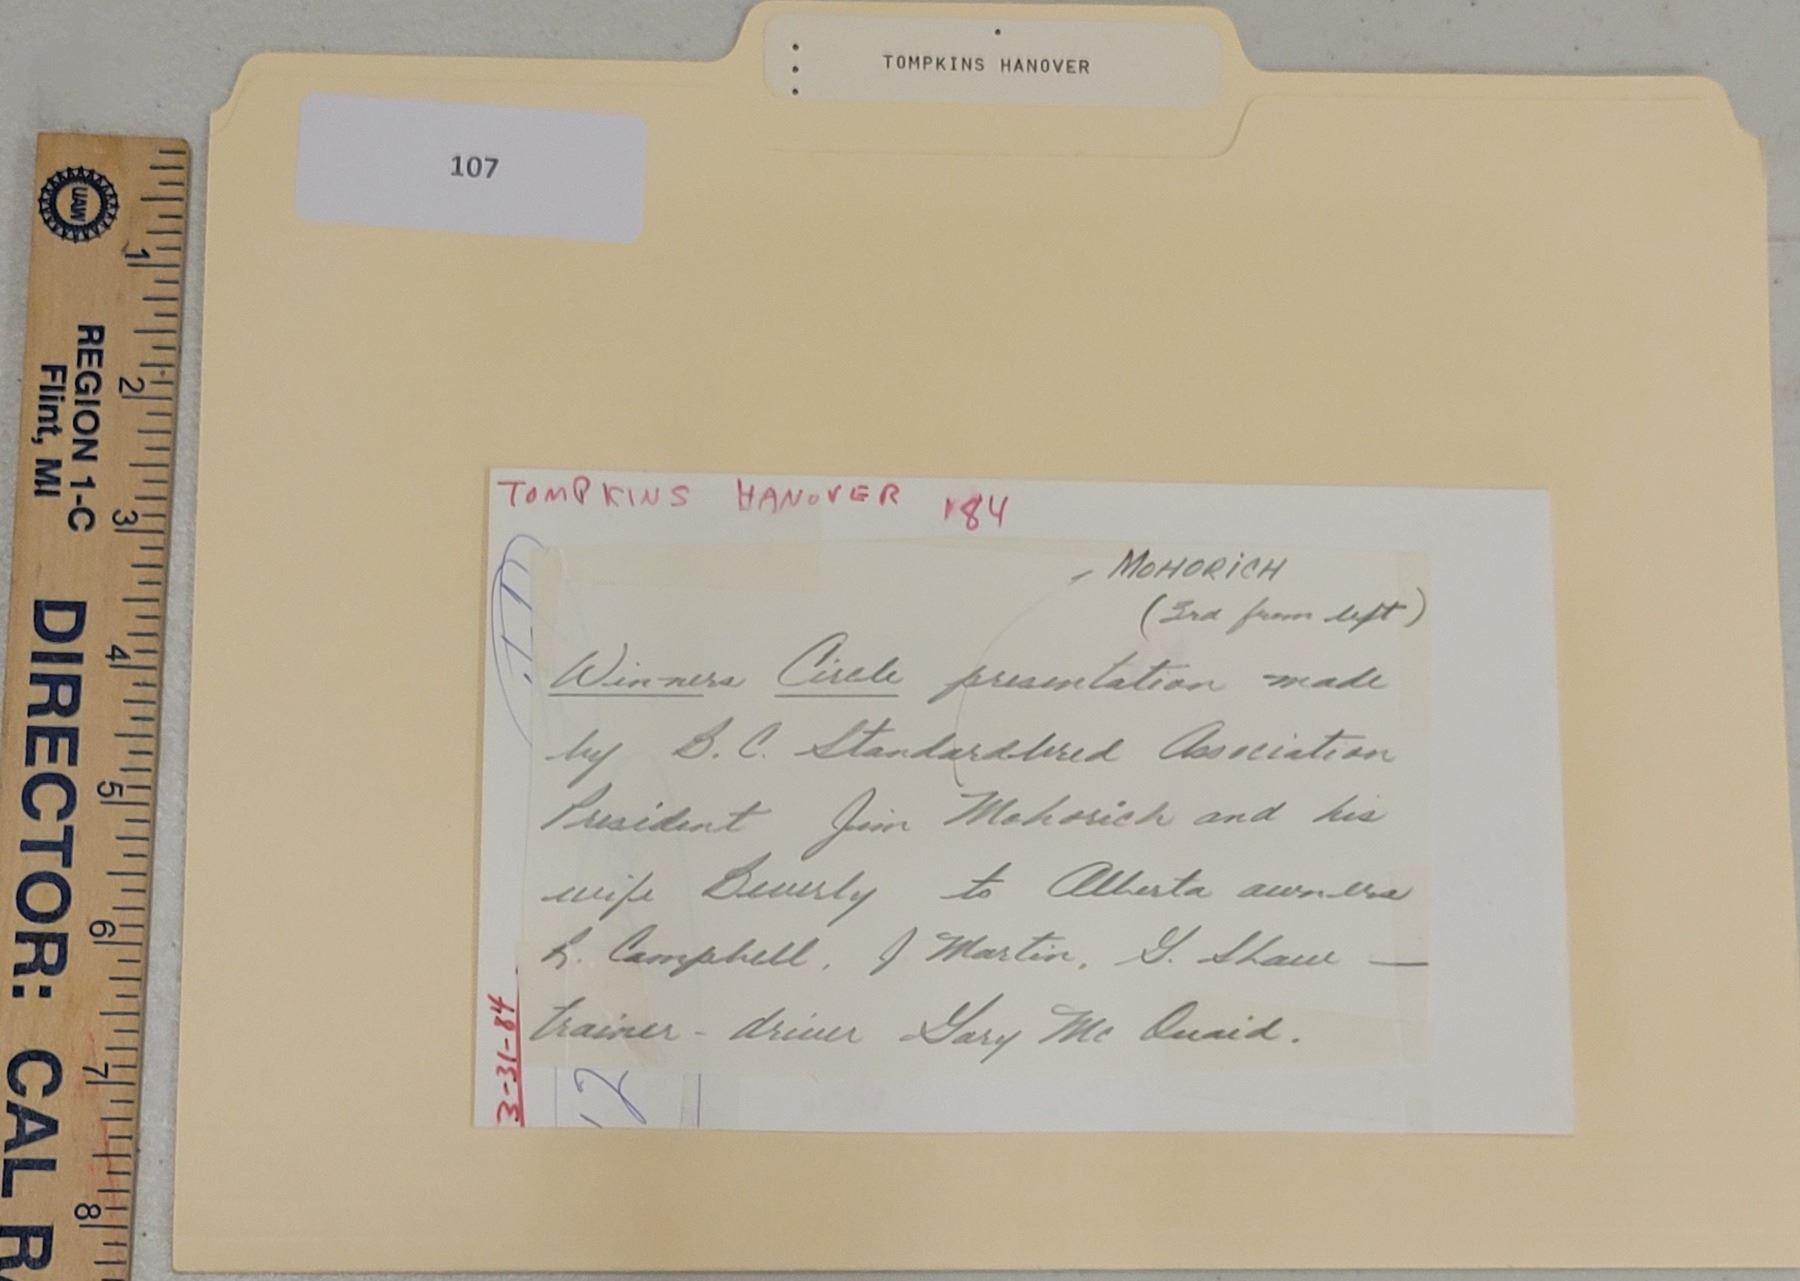 TOMPKINS HANOVER
107
TOMPKINS HANOVER '84
MOHORICH
(3rd from left)
Winners Circle presentation made
by B.C. Standardbred Association
President Jim Mohorich and his
wife Beverly to Alberta owners
R. Campbell, J Martin, G. Shaw —
trainer - driver Gary Mc Quaid.
3-31-84
12
UAW
REGION 1-C
Flint, MI
DIRECTOR: CAL R
1
2
3
4
5
6
7
8